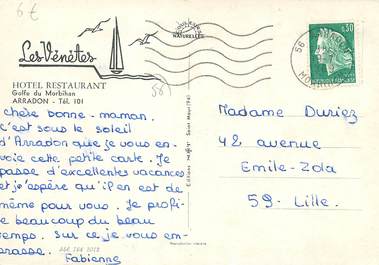 6 €
Les Vénètes
HOTEL RESTAURANT
Golfe du Morbihan
ARRADON - Tél. 101
(56)
chère bonne-maman,
c'est sous le soleil
d'Arradon que je vous en-
voie cette petite carte. Je
passe d'excellentes vacances
et j'espère qu'il en est de
même pour vous. Je profi-
te beaucoup du beau
temps. Sur ce je vous em-
brasse.
Fabienne
NATURELLES
56
0,30
Madame Duriez
42 avenue
Emile-Zola
59-Lille.